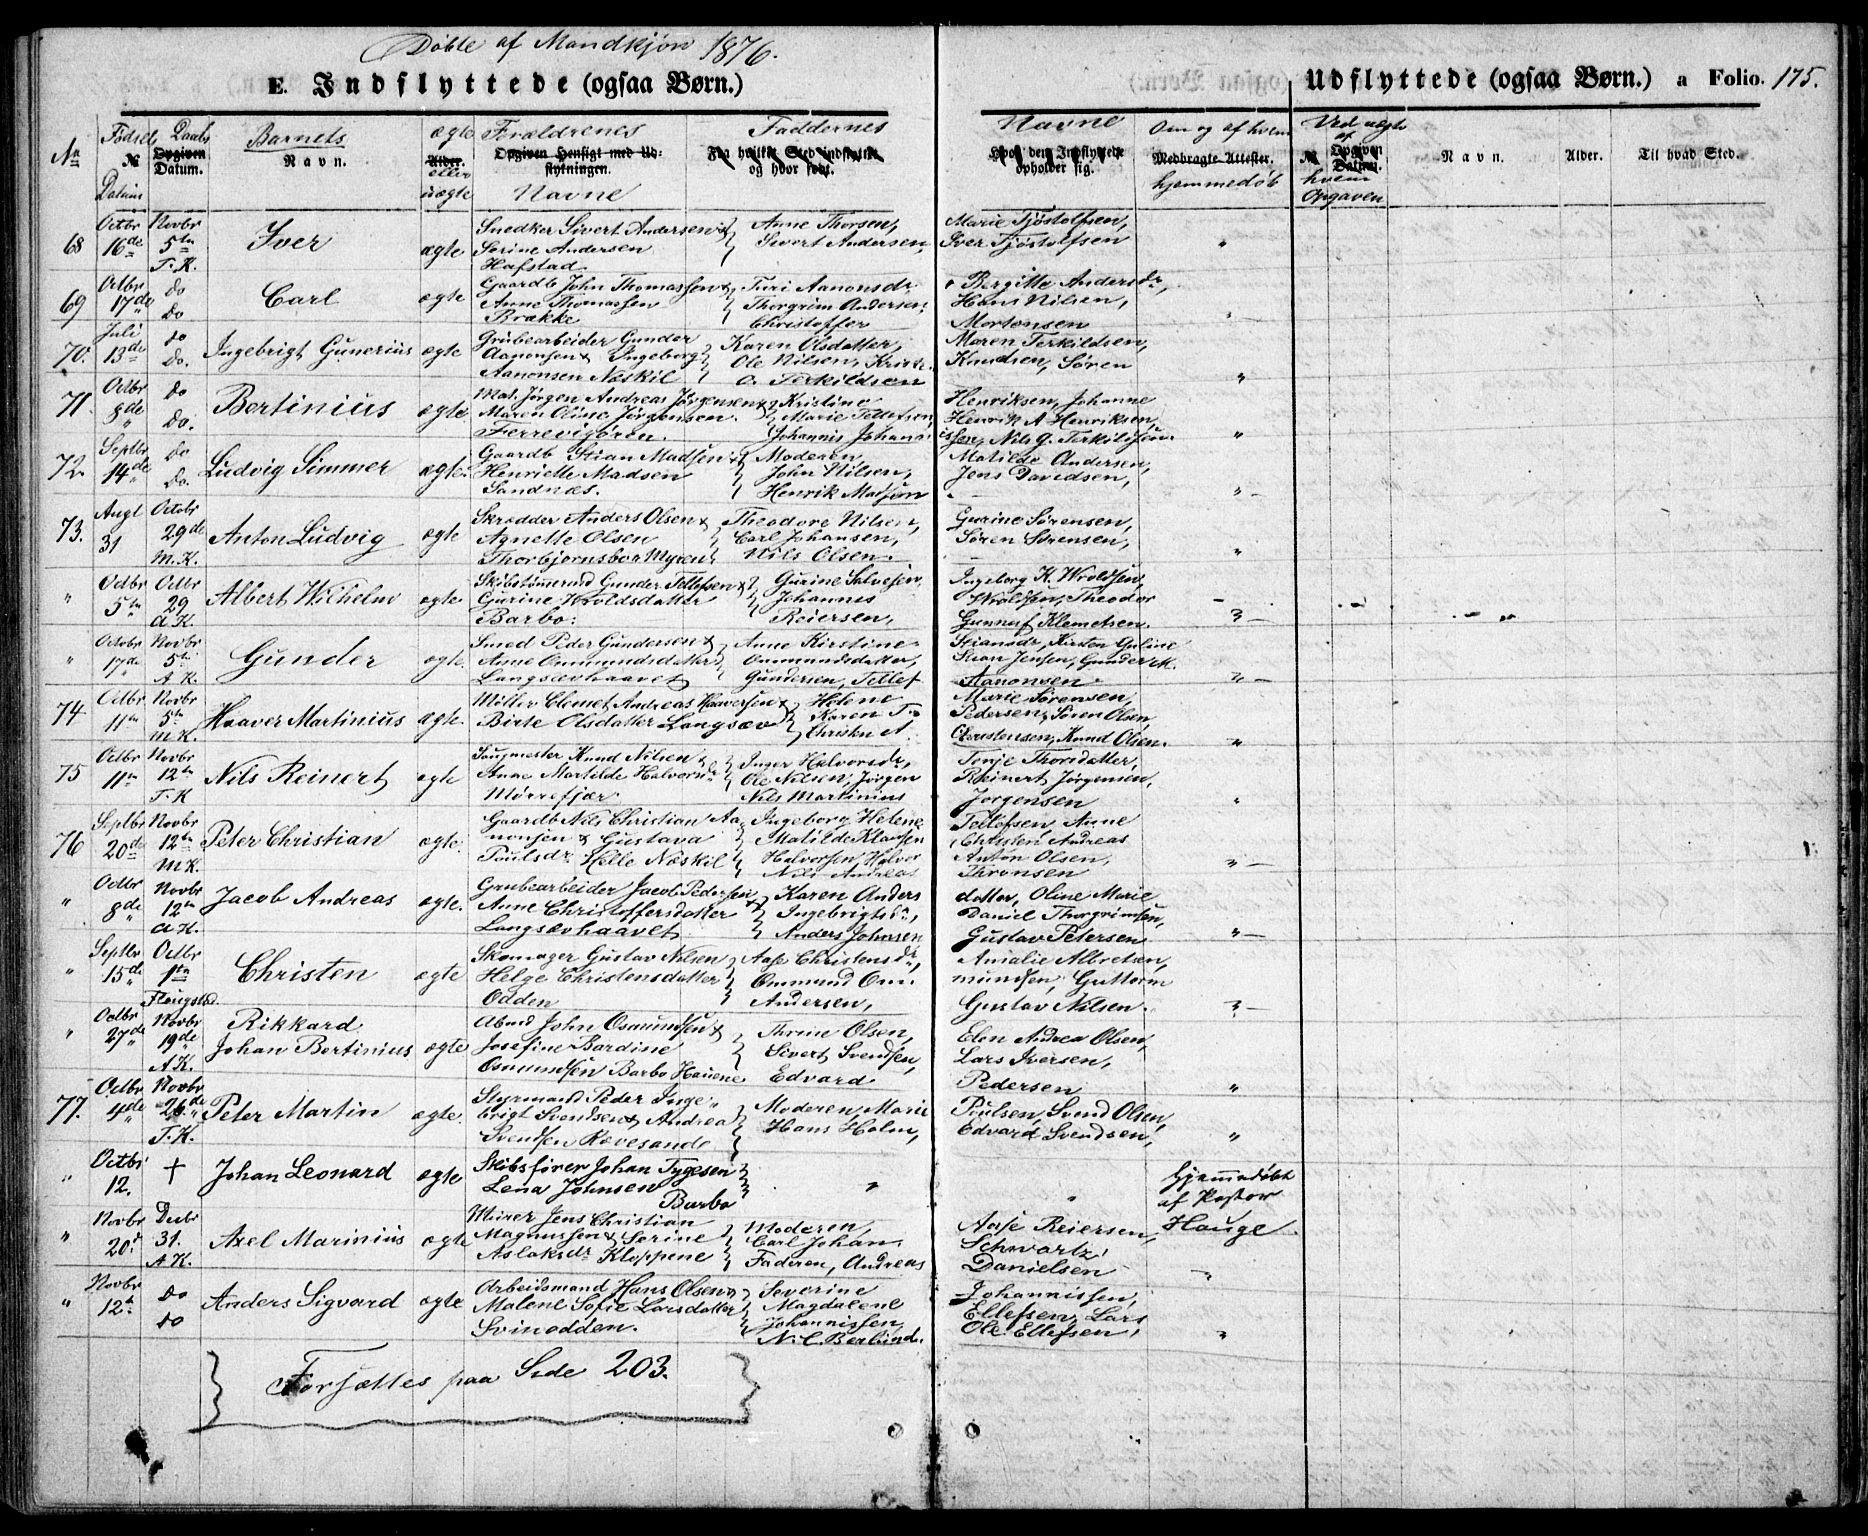 Døbte af Mandkjøn 1876.
E. Indflyttede (ogsaa Børn.)
Udflyttede (ogsaa Børn.) a Folio. 175.
No Fødsels Datum Daabs Datum. Barnets Navn. ægte eller uægte Forældrenes Navne Faddernes Navne Om og af hvem hjemmedøbt Ved uægte af hvem Opgaven
№ Opgiven Datum. Navn. Alder. Opgiven Hensigt med Udflytningen. Fra hvilket Sted indflyttet og hvor født. Hvos dem Indflyttede opholder sig. Medbragte Attester. № Opgiven Datum. Navn. Alder. Til hvad Sted.
68 Octbr 16de Novbr 5te T. K. Iver ægte
Snedker Sivert Andersen &
Serine Andersen
Hafstad
Anne Thorsen, Marie Tjøstolfsen,
Sivert Andersen, Iver Tjøstolfsen
69 Octbr 17de do do Carl ægte
Gaardb John Thomassen &
Anne Thomassen
Brække
Turi Aanonsdr Bergitte Andersdr,
Thorgrim Andersen, Hans Nilsen,
Christoffer Mortensen
70. Juli 13de do do. Ingebrigt Gunerius ægte
Grubearbeider Gunder
Aanonsen & Ingeborg
Aanonsen Næskil
Karen Olsdatter, Maren Terkildsen,
Ole Nilsen, Knudsen, Søren
Terkildsen
71. Octbr 8de do do. Bertinius ægte
Mat. Jørgen Andreas Jørgensen &
Maren Oline Jørgensen.
Ferrevigøren.
Kristine Henriksen, Johanne
Marie Tellefsen, Henrik A Henriksen,
Johannis Johannissen, Nils G. Terkildsen
72. Septbr 14de do do. Ludvig Simmer ægte.
Gaardb Stian Madsen &
Henriette Madsen
Sandnæs.
Moderen, Matilde Andersen,
John Nilsen, Jens Davidsen,
Henrik Madsen
73. Augt 31 Octobr 29de M. K. Anton Ludvig ægte
Skrædder Anders Olsen &
Agnette Olsen
Thorbjørnsbo Myrene
Theodore Nilsen, Gurine Sørensen,
Carl Johansen, Søren Sørensen,
Nils Olsen.
" Octbr 5te Octbr 29 A K. Albert Wilhelm ægte.
Skibstømermd Gunder Tellefsen &
Gurine Wroldsdatter
Barbo:
Gurine Salvesen, Ingeborg K. Wroldsen,
Johannes Wroldsen, Theodor
Reiersen, Gunnuf Klemetsen.
" Octobr 17de Novbr 5te A K. Gunder ægte.
Smed Peder Gundersen &
Anne Ommundsdatter
Langsævhaavet
Anne Kirstine Stiansdr, Kirsten Guline
Ommundsdatter, Stian Jensen, Gunder M.
Gundersen, Tellef Aanonsen
74 Octbr 11te Novbr 5te M K. Haaver Martinius ægte.
Møller Clemet Andreas Haaversen &
Birte Olsdatter Langsæv
Helene Marie Sørensen,
Karen T. Pedersen, Søren Olsen,
Christen A. Christensen, Knud Olsen.
75 Octbr 11te Novbr 12te T. K Nils Reinert ægte
Saugmester Knud Nilsen &
Anne Martilde Halvorsdr
Mørrefjær
Inger Halvorsdr, Tonje Thorsdatter,
Ole Nilsen, Jørgen Reinert Jørgensen,
Nils Martinius Jørgensen
76 Septbr 20de Novbr 12te M K. Peter Christian ægte.
Gaardb Nils Christian Aa
nonsen & Gustava
Poulsdr Helle Næskil
Ingeborg Helene Tellefsen, Anne
Matilde Klausen Christen Andreas
Halvorsen, Halvor Anton Olsen,
Nils Andreas Thronsen
" Octbr 8de Novbr 12te A K. Jacob Andreas ægte.
Grubearbeider Jacob Pedersen
Anne Christoffersdatter
Langsævhaavet
Karen Anders datter, Oline Marie
Ingebrigtsdr, Daniel Thorgrimsen,
Anders Johnsen Gustav Petersen
" Septbr 15de Octbr 1te Flougstad Christen ægte
Skomager Gustav Nilsen
Helge Christensdatter
Odden
Aase Christensdr, Amalie Albretsen,
Ommund Om mundsen, Guttorm
Andersen, Gustav Nilsen.
" Octbr 27de Novbr 19de A K. Rikkard Johan Bertinius ægte
Abmd John Osmundsen &
Josefine Bardine
Osmundsen Barbo Havene
Thrine Olsen, Elen Andrea Olsen,
Sivert Svendsen, Lars Iversen,
Edvard Pedersen
77. Octbr 4de Novbr 26de T. K. Peter Martin ægte.
Styrmand Peder Inge
brigt Svendsen & Andrea
Svendsen Rævesande
Moderen, Marie Poulsen, Svend Olsen,
Hans Holm, Edvard Svendsen,
" Octbr 12. † Johan Leonard ægte
Skibsfører Johan Tygesen
Lena Johnsen
Barbo
" " Hjemmedøbt af Pastor Hauge
" Novbr 20de Decbr 31. A K. Axel Marinius ægte
Murer Jens Christian
Magnussen & Serine
Aslaksdr Kloppene
Moderen, Aase Reiersen,
Carl Johan Schwartz,
Faderen, Andreas Danielsen
" Novbr 12te do do Anders Sigvard ægte
Arbeidsmand Hans Olsen &
Malene Sofie Larsdatter
Svinodden.
Severine Johannissen,
Magdalene Ellefsen, Lars
Johannissen, Ole Ellefsen,
N. C. Berlund.
Forsættes paa Side 203.